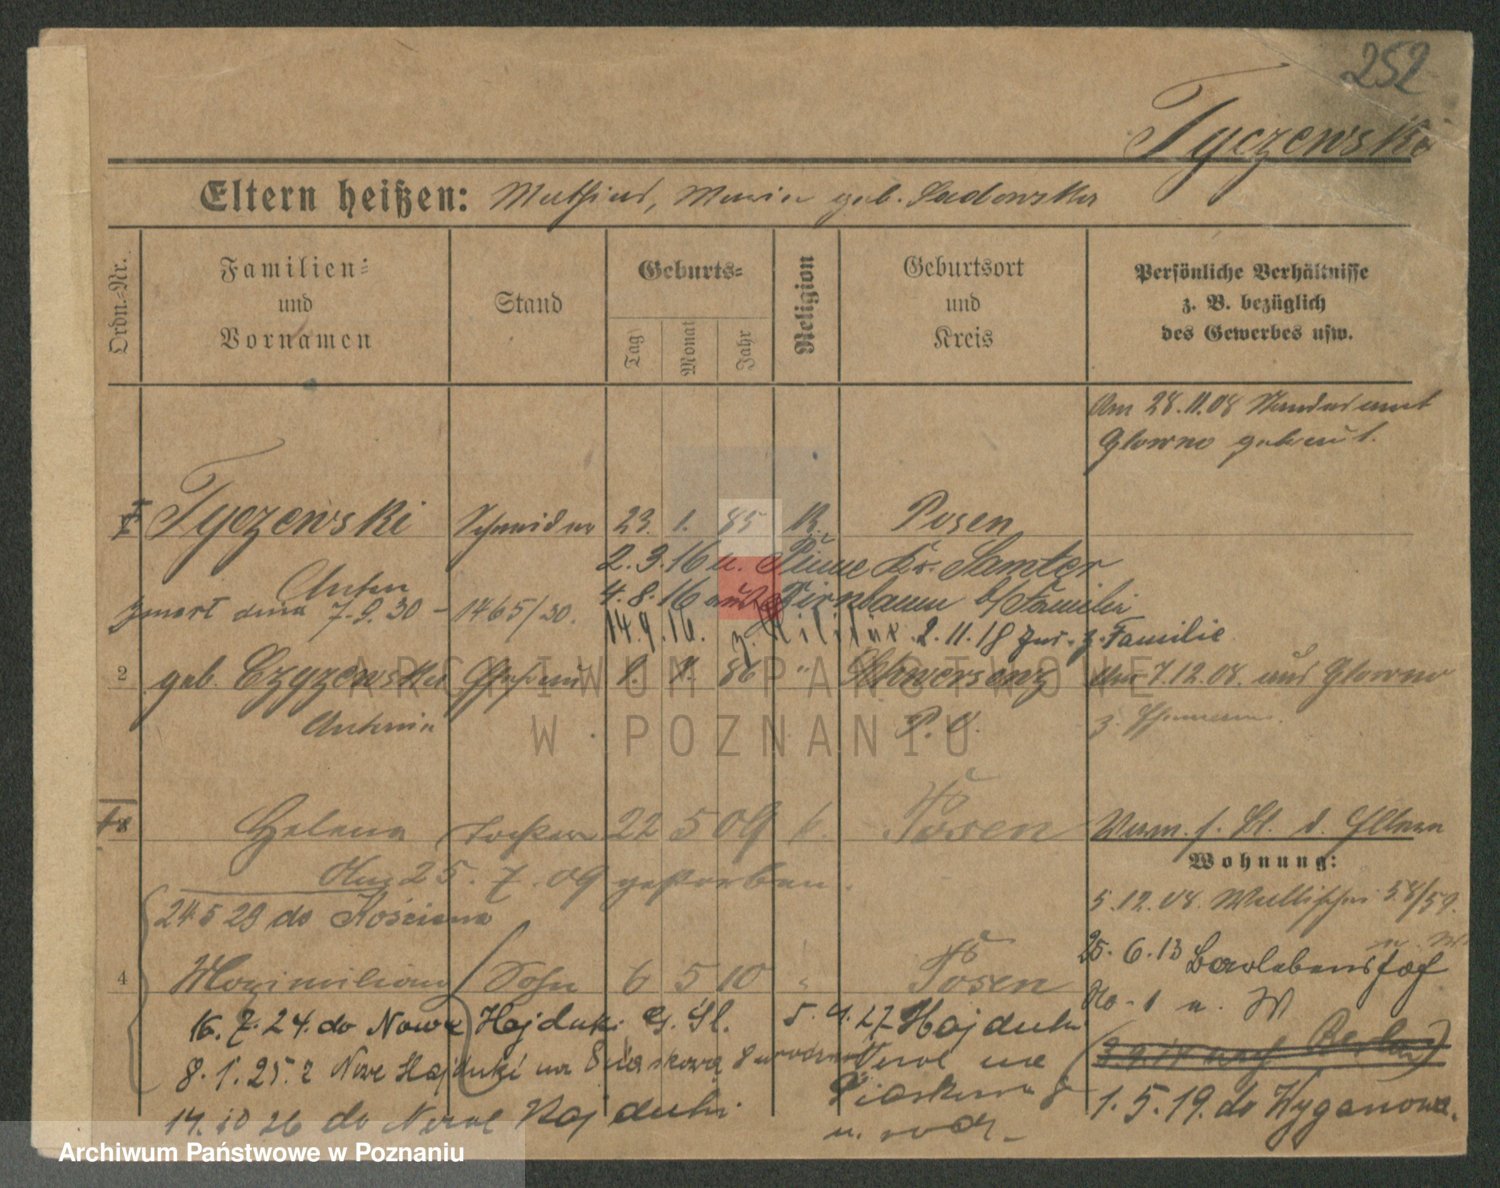 252
Tyczewski
Eltern heißen: Mathias, Maria geb. Sadowska
Ordn.-Nr.
Familien-
und
Vornamen
Stand
Geburts-
Tag
Monat
Jahr
Religion
Geburtsort
und
Kreis
Persönliche Verhältnisse
z. B. bezüglich
des Gewerbes usw.
Am 28.11.08 Standesamt
Glowno getraut.
Tyczewski Schneider 23. 1. 85 K. Posen
Anton
2. 3. 16 u. Pinne Kr. Samter
zmarł dnia 7.9.30 - 1465/30.
4. 8. 16 aus Birnbaum z/Familie
14.9.16. z. Militär. 2.11.18 zur. z. Familie
2 geb. Czyzewska Ehefrau 86 " Schwersenz Am 7.12.08. aus Glowno
Antonie P. O. z. Ehemann.
Helena Tochter 22 5 09 k. Posen
Verm. s. Bl. d. Eltern
Am 25. 7. 09 gestorben.
Wohnung:
24 5 29 do Kościana
5.12.08. Wallischei 58/59.
4 Maximilian Sohn 6 5 10 " Posen
25. 6. 13
16. 7. 24. do Nowe Hajduki G. Śl.
5. 4. 27 Hajduki
8. 1. 25. z Nowe Hajduki na Piaskową 8
14. 10 26 do Hajduki.
1. 5. 19. do Zyganowa.
ARCHIWUM PAŃSTWOWE
W POZNANIU
Archiwum Państwowe w Poznaniu